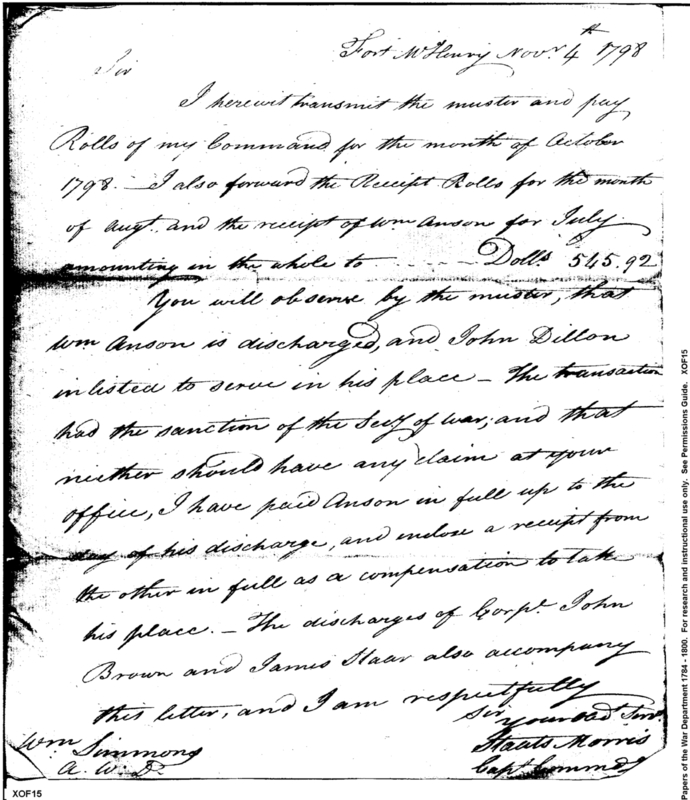 Fort McHenry Novr. 4th 1798
Sir
I herewit transmit the muster and pay
Rolls of my Command for the month of October
1798. – I also forward the Receipt Rolls for the month
of Augt. and the receipt of Wm Anson for July
amounting in the whole to - - - - - Dolls. 545.92
You will observe by the muster, that
Wm Anson is discharged, and John Dillon
inlisted to serve in his place – The transaction
had the sanction of the Secy of War; and that
neither should have any claim at your
office, I have paid Anson in full up to the
day of his discharge, and inclose a receipt from
the other in full as a compensation to take
his place. – The discharges of Corpl. John
Brown and James Staar also accompany
this letter, and I am respectfully
Sir
Your Obd. Servt.
Staats Morris
Capt. Commdg
Wm Simmons
A. W. D.
XOF15
Papers of the War Department 1784 - 1800. For research and instructional use only. See Permissions Guide. XOF15